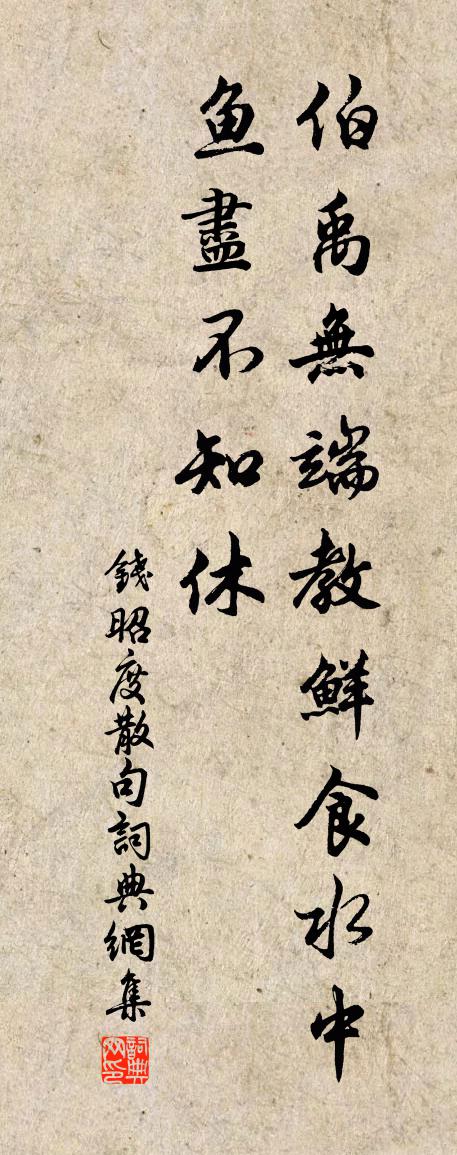 伯禹無端教鮮食水中
魚盡不知休
錢昭度散句詞典網集
詞典网印